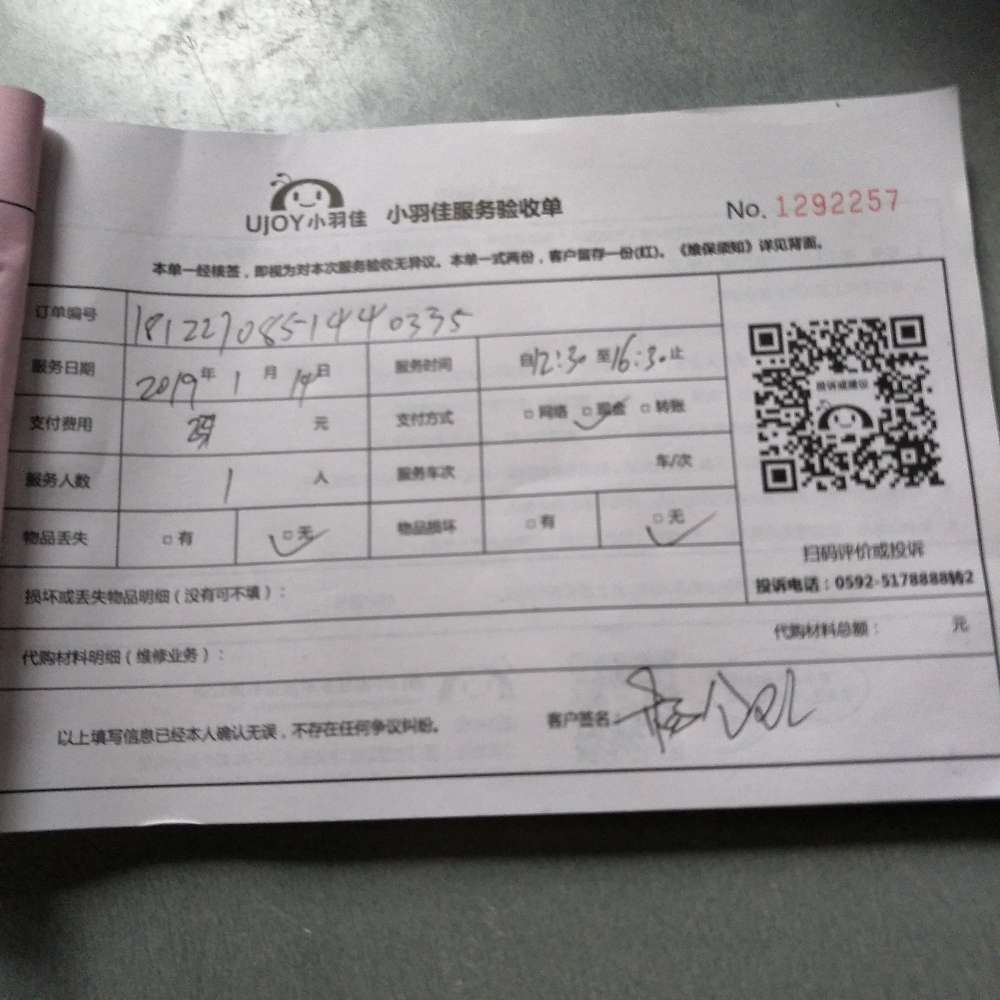 UJOY小羽佳 小羽佳服务验收单 No. 1292257
本单一经核签，即视为对本次服务验收无异议。本单一式两份，客户留存一份(红)。《维保须知》详见背面。
订单编号 181227085144 0335
服务日期 2019年 1 月 19日 服务时间 自12:30至16:30止
支付费用 元 支付方式 □ 网络 □ 现金 □ 转账
服务人数 1 人 服务车次 车/次
物品丢失 □ 有 □ 无 物品损坏 □ 有 □ 无
投诉或建议
扫码评价或投诉
投诉电话：0592-5178888转2
损坏或丢失物品明细（没有可不填）：
代购材料明细（维修业务）： 代购材料总额： 元
以上填写信息已经本人确认无误，不存在任何争议纠纷。 客户签名：